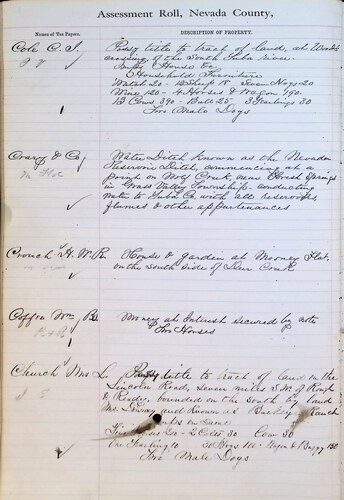 Assessment Roll, Nevada County,
Names of Tax Payers.
DESCRIPTION OF PROPERTY.
Cole C. S.
Possy title to tract of land, at
crossing of the South Yuba river.
Imps House &c
Household Furniture
Watch 20 - 20
120 - 4 Horses & Wagon 190.
13 Cows 390 - Bull 25 3 Yearlings 30
Two Male Dogs
& Co
Water Ditch Known as the Nevada
Reservoir Ditch, commencing at a
point on Wolf Creek, near Springs
in Grass Valley Township conducting
water to Yuba Co. with all reservoirs,
flumes & other appurtenances
Crouch H. W. R.
House & garden at Mooney Flat.
on the South Side of Deer Creek
Coffin Wm B.
Money at Interest Secured by note
Two Horses
Church Mrs L.
Possy title to tract of land on the
Lincoln Road, seven miles S.W. of Rough
& Ready, bounded on the south by land
and Known as Ranch
Imps on Same
2 Colts 30 Cow 30
One Yearling 10 20 Hogs 100 - Wagon & Buggy 150
Two Male Dogs